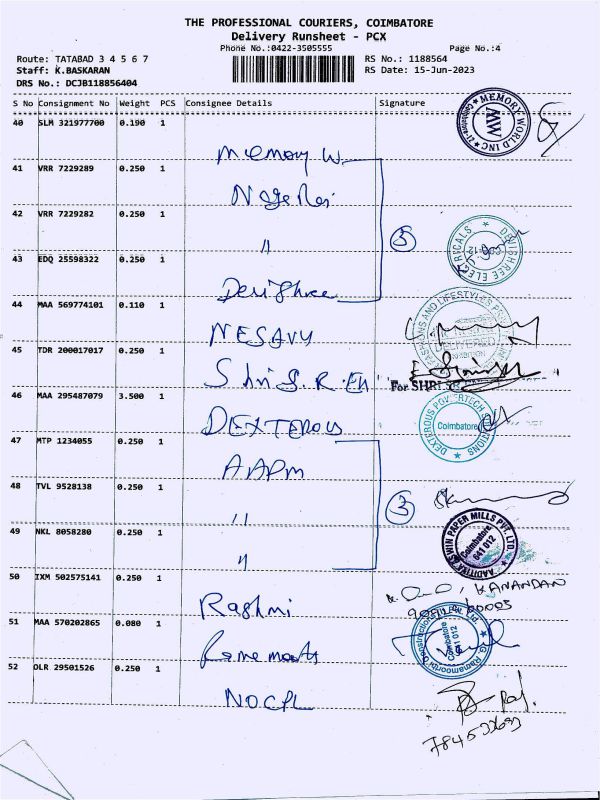 THE PROFESSIONAL COURIERS, COIMBATORE
Delivery Runsheet - PCX
Phone No.:0422-3505555 Page No.:4
Route: TATABAD 3 4 5 6 7 RS No.: 1188564
Staff: K.BASKARAN RS Date: 15-Jun-2023
DRS No.: DCJB118856404
S No Consignment No Weight PCS Consignee Details Signature
40 SLM 321977700 0.190 1 Memory W.
MEMORY WORLD INC
Coimbatore
MW
41 VRR 7229289 0.250 1
42 VRR 7229282 0.250 1 "
3
DEVISHREE ELECTRICALS
43 EDQ 25598322 0.250 1 Devi Shree
44 MAA 569774101 0.110 1 NESAVY
FASHIONS AND LIFESTYLES
DELIVERED
45 TDR 200017017 0.250 1 Shri G.R. En
For SHRI
46 MAA 295487079 3.500 1 DEXTEROUS
DEXTEROUS
Coimbatore
47 MTP 1234055 0.250 1 AAPM
48 TVL 9528138 0.250 1 "
3
49 NKL 8058280 0.250 1 "
AADITHA ASWIN PAPER MILLS PVT. LTD.
Coimbatore
641 012
50 IXM 502575141 0.250 1 Rashmi
KANANDAN
51 MAA 570202865 0.080 1
Coimbatore
641 012
52 OLR 29501526 0.250 1 NOCPL